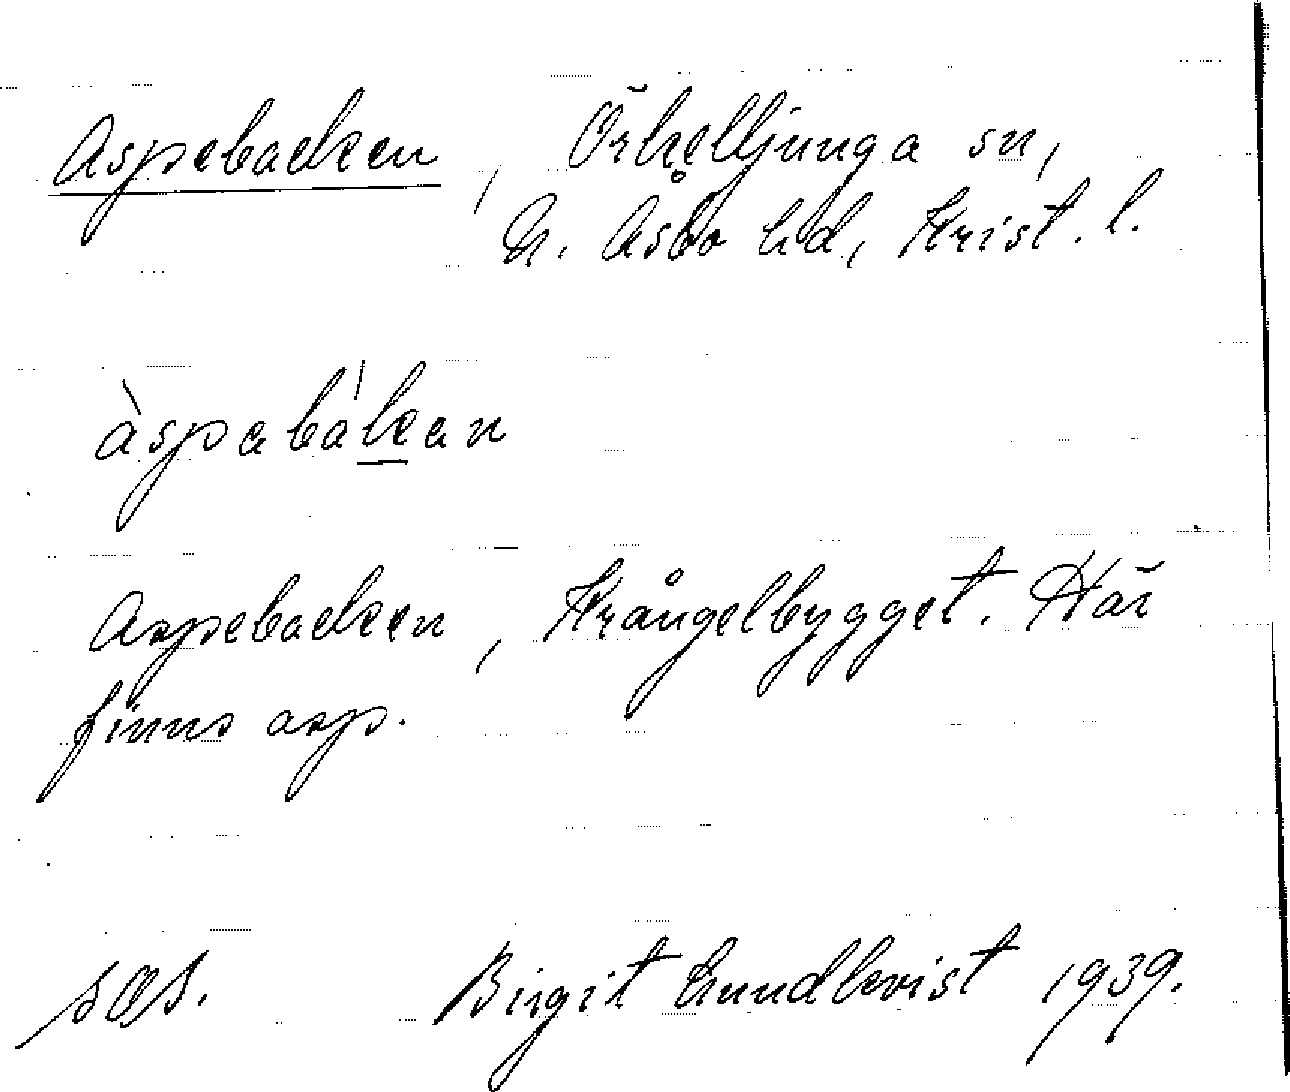 Aspebacken, Örkelljunga sn,
N. Åsbo hd, Krist. l.
àspabák̲an
Aspebacken, Krångelbygget. Här
finns asp.
Birgit Lundkvist 1939.